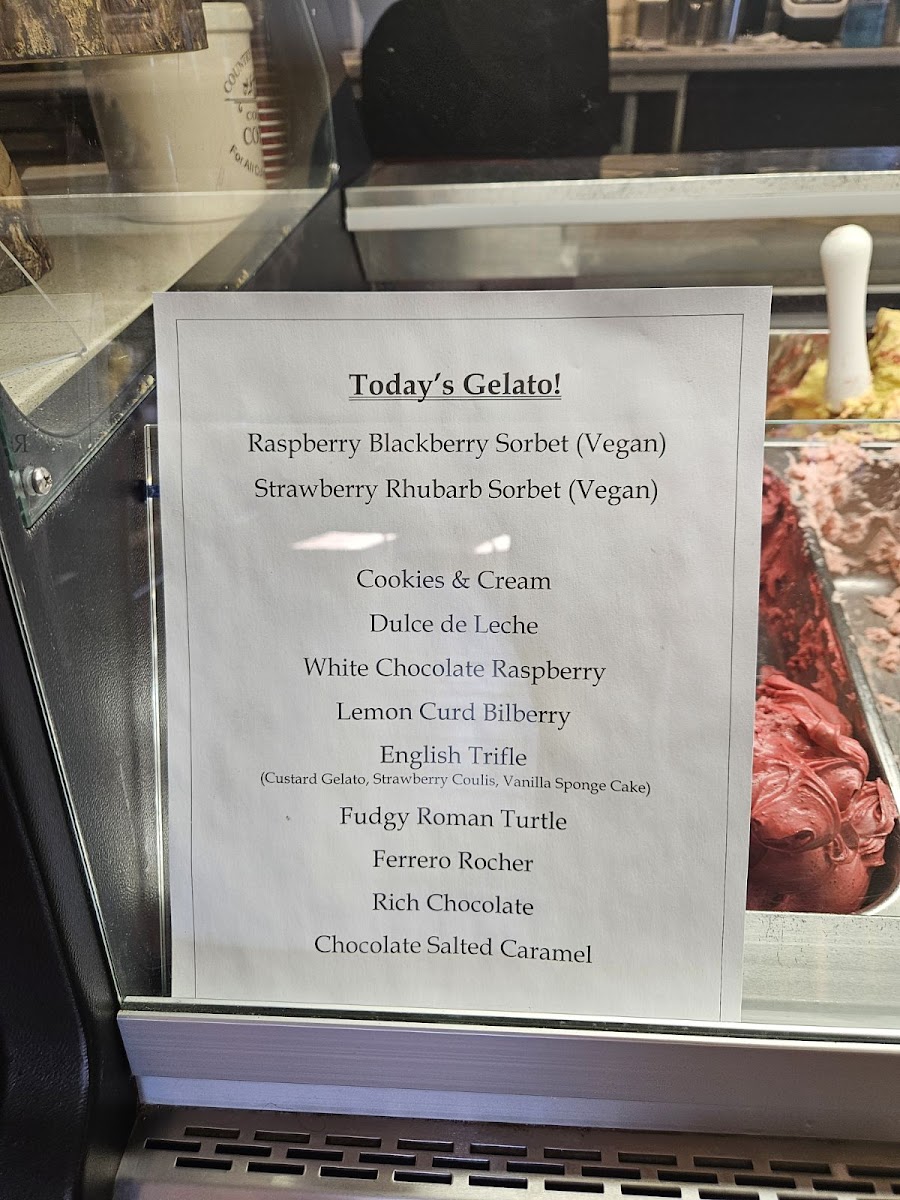 COUNT
CO
CO
For All O
R
Today's Gelato!
Raspberry Blackberry Sorbet (Vegan)
Strawberry Rhubarb Sorbet (Vegan)
Cookies & Cream
Dulce de Leche
White Chocolate Raspberry
Lemon Curd Bilberry
English Trifle
(Custard Gelato, Strawberry Coulis, Vanilla Sponge Cake)
Fudgy Roman Turtle
Ferrero Rocher
Rich Chocolate
Chocolate Salted Caramel